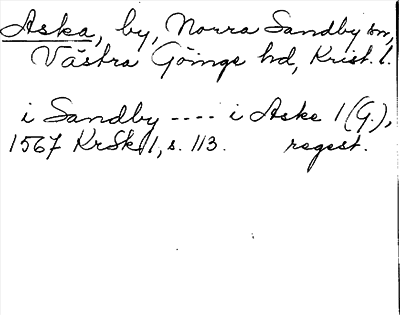 Aska, by, Norra Sandby sn,
Västra Göinge hd, Krist. l.
i Sandby ---- i Aske 1 (G.),
1567 KrSk 1, s. 113. regest.